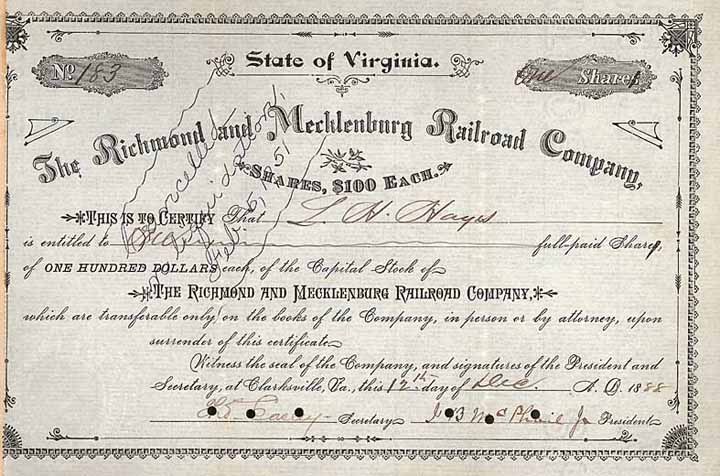 No 183
State of Virginia.
One Shares
The Richmond and Mecklenburg Railroad Company,
SHARES, $100 EACH.
Cancelled
Liquidation,
Feb. 6, 1951
THIS IS TO CERTIFY That L. H. Hayes
is entitled to One full-paid Share,
of ONE HUNDRED DOLLARS each, of the Capital Stock of
THE RICHMOND AND MECKLENBURG RAILROAD COMPANY,
which are transferable only on the books of the Company, in person or by attorney, upon
surrender of this certificate.
Witness the seal of the Company, and signatures of the President and
Secretary, at Clarksville, Va., this 12th day of Dec. A. D. 1888
Secretary President